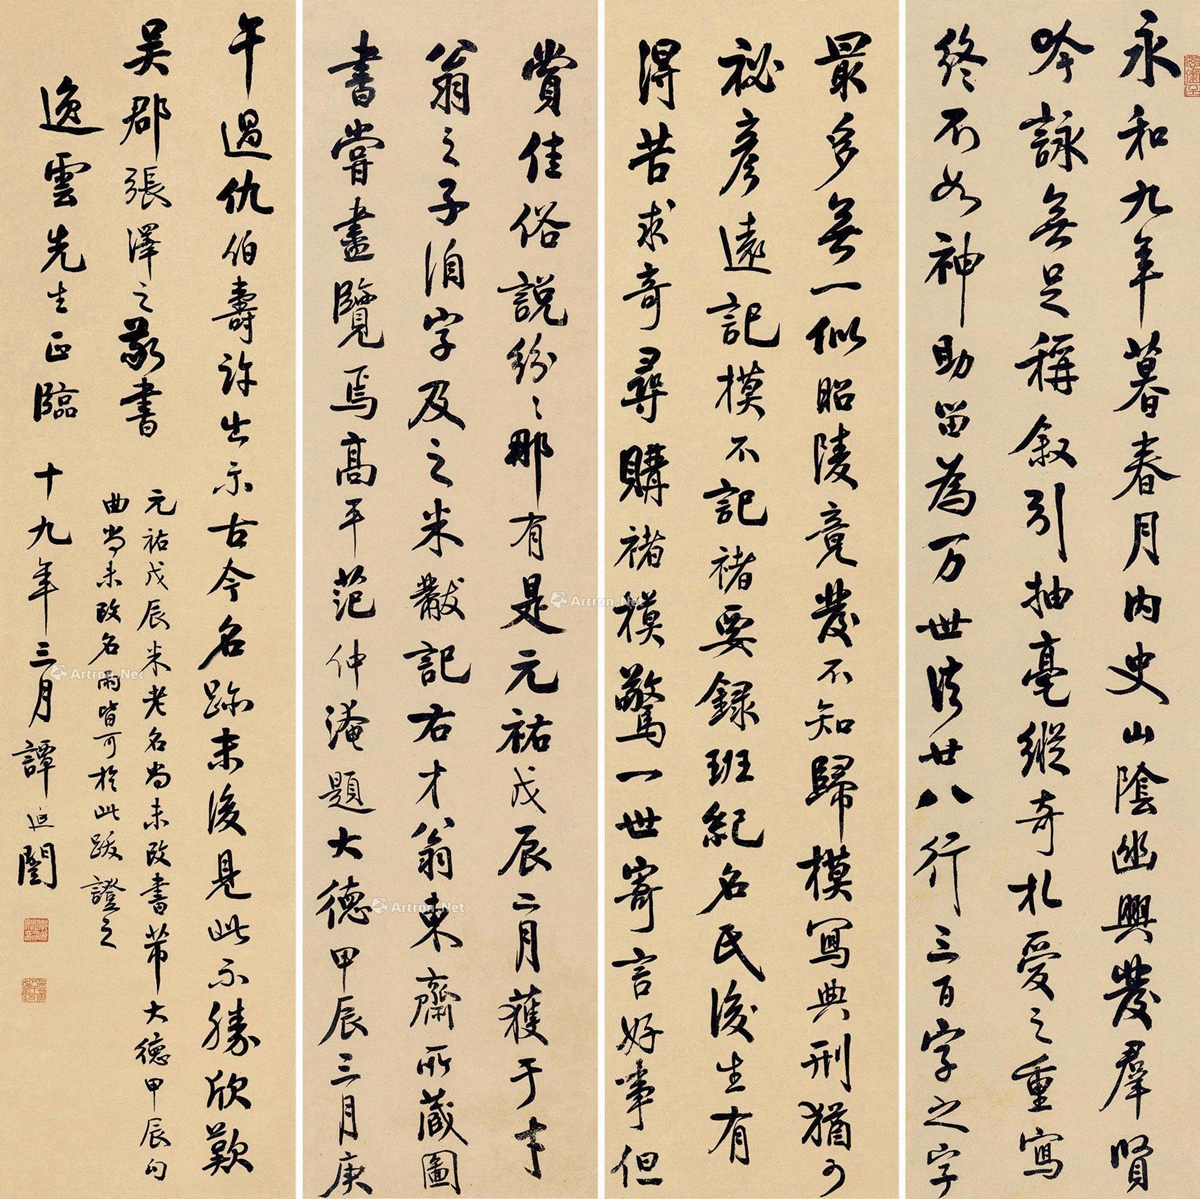 永和九年暮春月内史山陰幽興發羣賢
吟詠無足稱叙引抽毫縱奇札愛之重寫
終不如神助留為万世法廿八行三百字之字
最多無一似昭陵竟發不知歸模寫典刑猶可
祕彦遠記模不記褚要錄班紀名氏後生有
得苦求奇尋購褚模驚一世寄言好事但
賞佳俗說紛〻那有是元祐戊辰二月獲于才
翁之子洎字及之米黻記右才翁東齋所藏圖
書嘗盡覽焉高平范仲淹題大德甲辰三月庚
午過仇伯壽許出示古今名跡末後見此不勝欣歎
吳郡張澤之敬書
元祐戊辰米老名尚未改書芾大德甲辰勾
曲尚未改名雨皆可於此跋證之
逸雲先生正臨 十九年三月譚延闓
Artron.Net
Artron.Net
Artron.Net